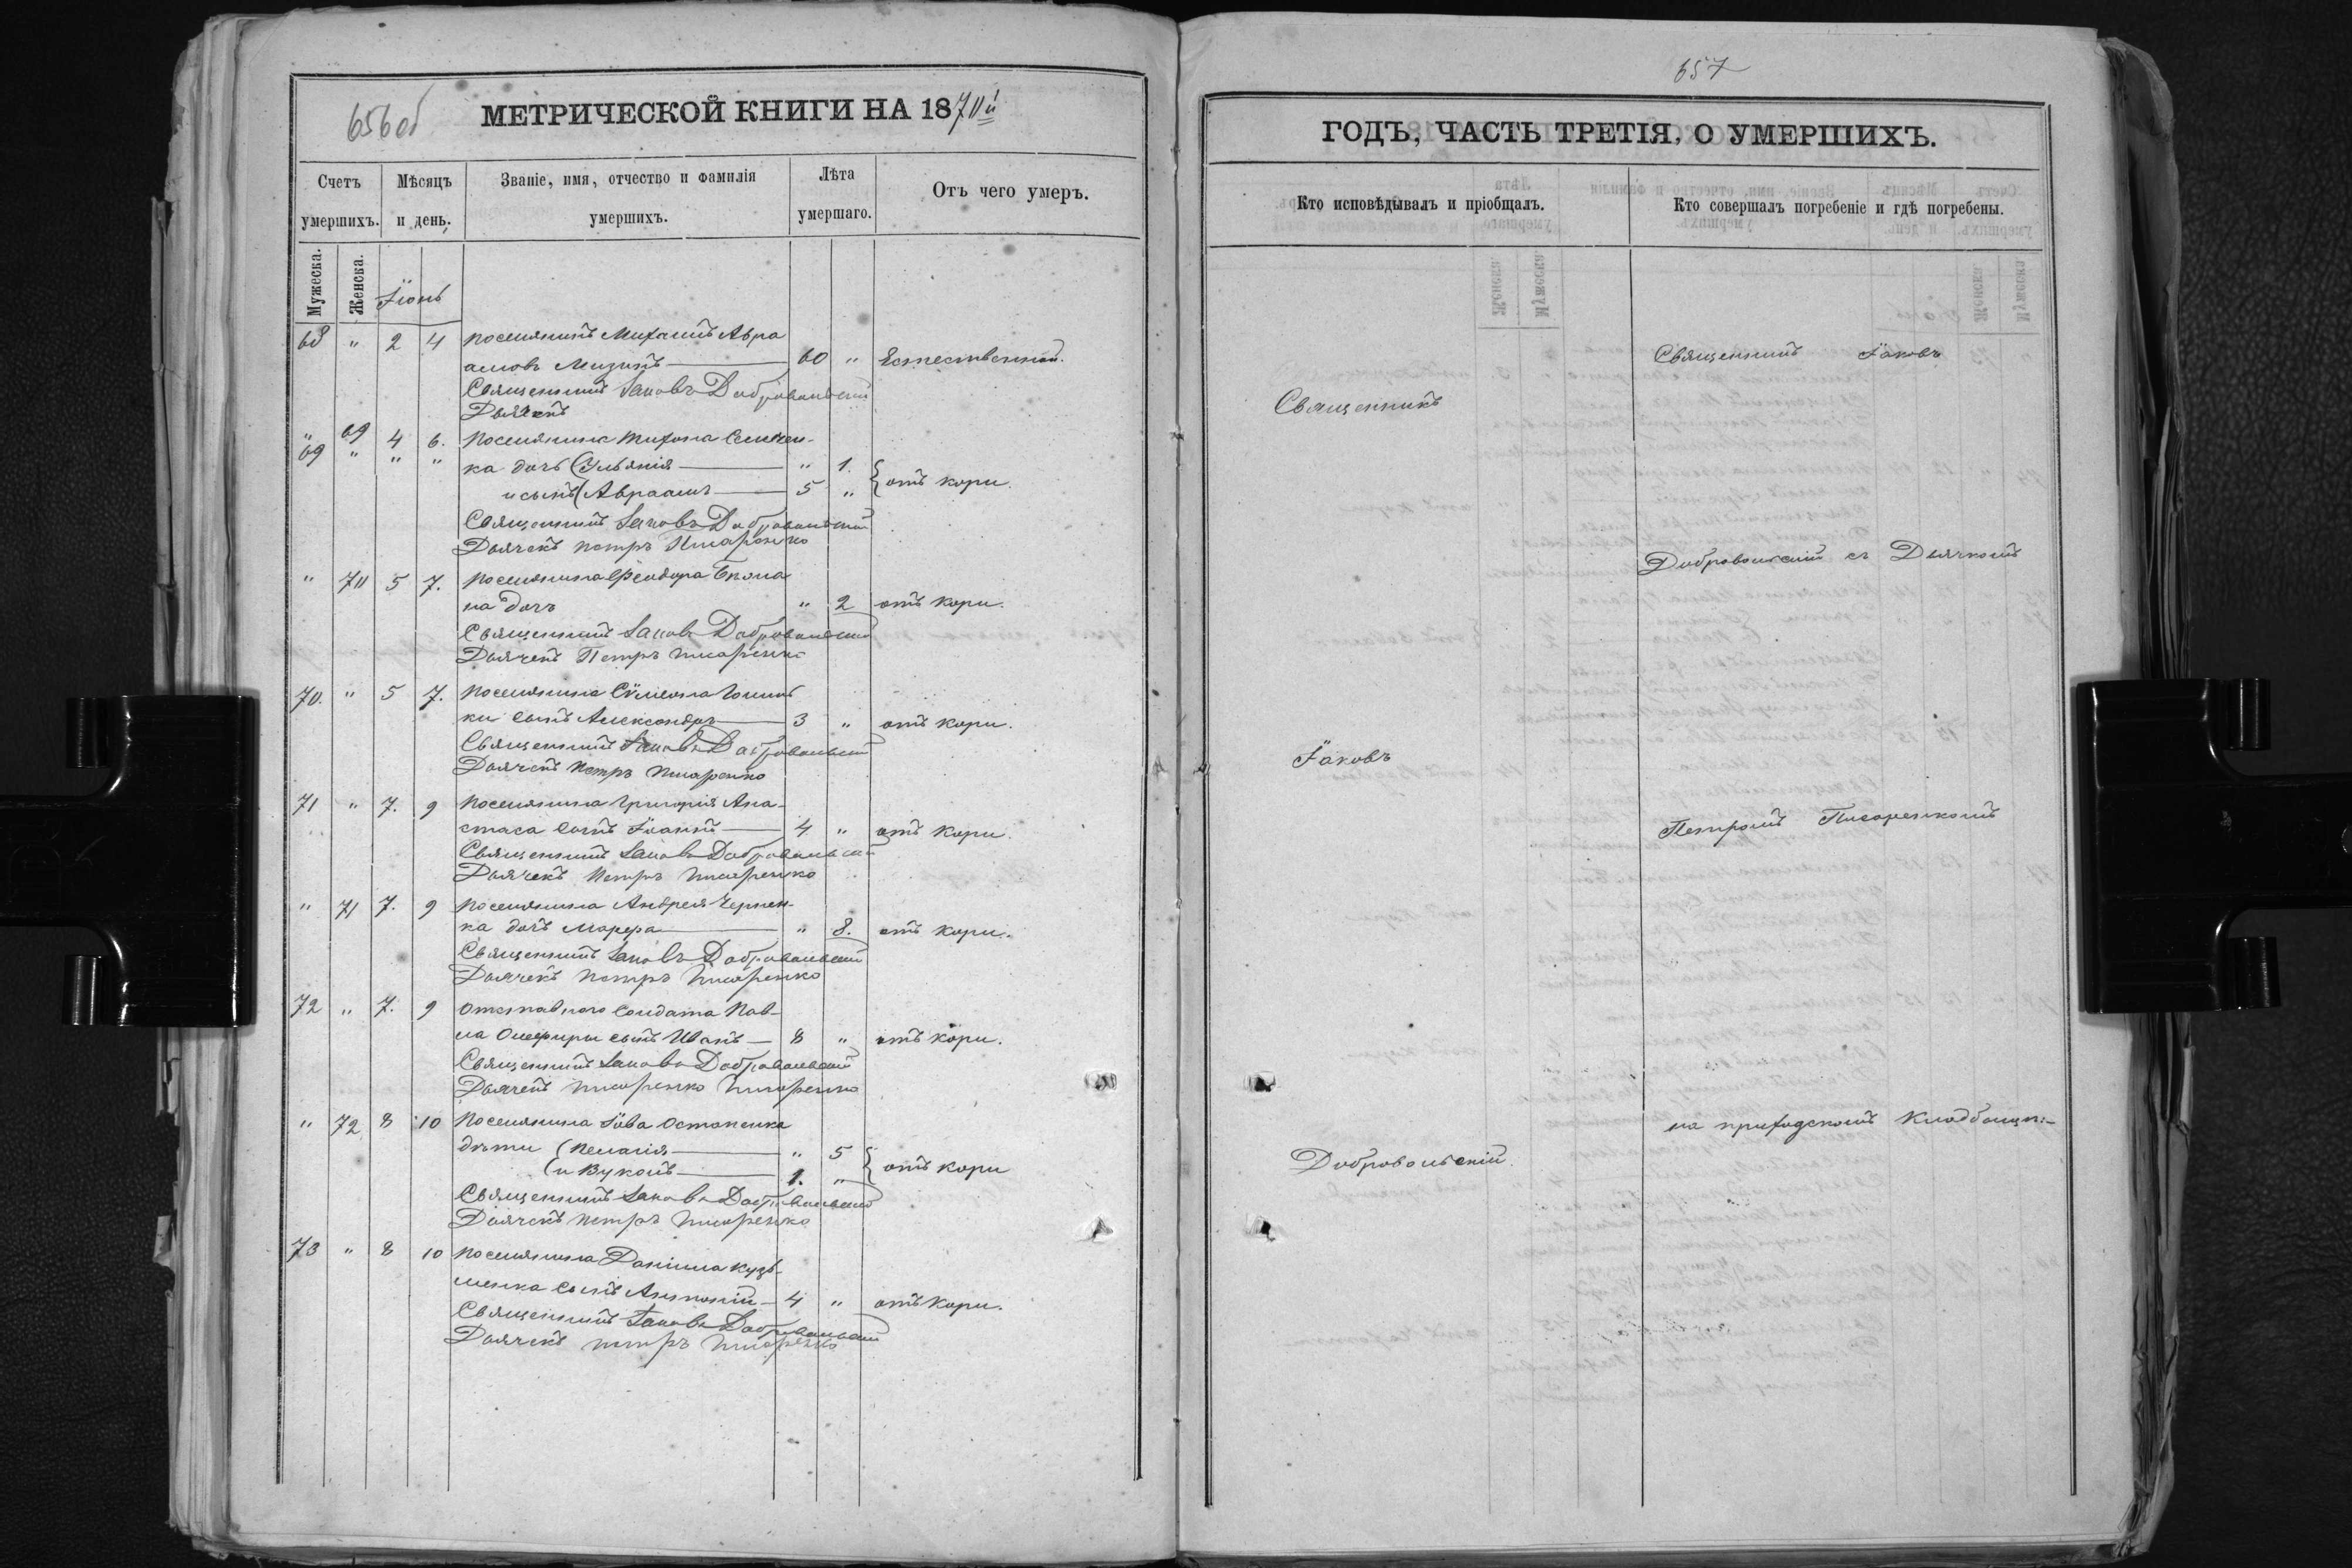 656 об
МЕТРИЧЕСКОЙ КНИГИ НА 1870й
Счетъ умершихъ.
Мѣсяцъ и день.
Званіе, имя, отчество и фамилія умершихъ.
Лѣта умершаго.
Отъ чего умеръ.
Мужеска.
Женска.
Іюнь
68 " 2 4 Поселянинъ Михаилъ Авра
амовъ Мизинъ — 60 " Естественной.
Священникъ Іаковъ Добровольскій
Дьячекъ
" 69 4 6. Поселянина Тихона Семчен-
69 " " "
ка дочь (Ульянія — " 1.
и сынъ (Авраамъ — 5 " } отъ кори.
Священникъ Іаковъ Добровольскій
Дьячекъ Петръ Писаренко
" 70 5 7. Поселянина Ѳеодора
на дочь " 2 отъ кори.
Священникъ Іаковъ Добровольскій
Дьячекъ Петръ Писаренко
70. " 5 7. Поселянина Сѵмеона
ки сынъ Александръ — 3 " отъ кори.
Священникъ Іаковъ Добровольскій
Дьячекъ Петръ Писаренко
71 " 7. 9 Поселянина Григорія Ана-
стаса сынъ Іоаннъ — 4 " отъ кори.
Священникъ Іаковъ Добровольскій
Дьячекъ Петръ Писаренко
" 71 7. 9 Поселянина Андрея Чернен-
ка дочь Марфа — " 8. отъ кори.
Священникъ Іаковъ Добровольскій
Дьячекъ Петръ Писаренко
72 " 7. 9 Отставного Солдата Пав-
ла сынъ Иванъ — 8 " отъ кори.
Священникъ Іаковъ Добровольскій
Дьячекъ Писаренко Писаренко
" 72 8 10 Поселянина Іова Остапенка
дѣти (Пелагія — " 5
(и Вуколъ — 1. " } отъ кори
Священникъ Іаковъ Добровольскій
Дьячекъ Петръ Писаренко
73 " 8 10 Поселянина Даніила Кузь-
менка сынъ Антоній — 4 " отъ кори.
Священникъ Іаковъ Добровольскій
Дьячекъ Петръ Писаренко
657
ГОДЪ, ЧАСТЬ ТРЕТІЯ, О УМЕРШИХЪ.
Кто исповѣдывалъ и пріобщалъ.
Кто совершалъ погребеніе и гдѣ погребены.
Священникъ
Іаковъ
Добровольскій.
Священникъ Іаковъ
Добровольскій съ Дьячкомъ
Петромъ Писаренкомъ
на приходскомъ Кладбищѣ.